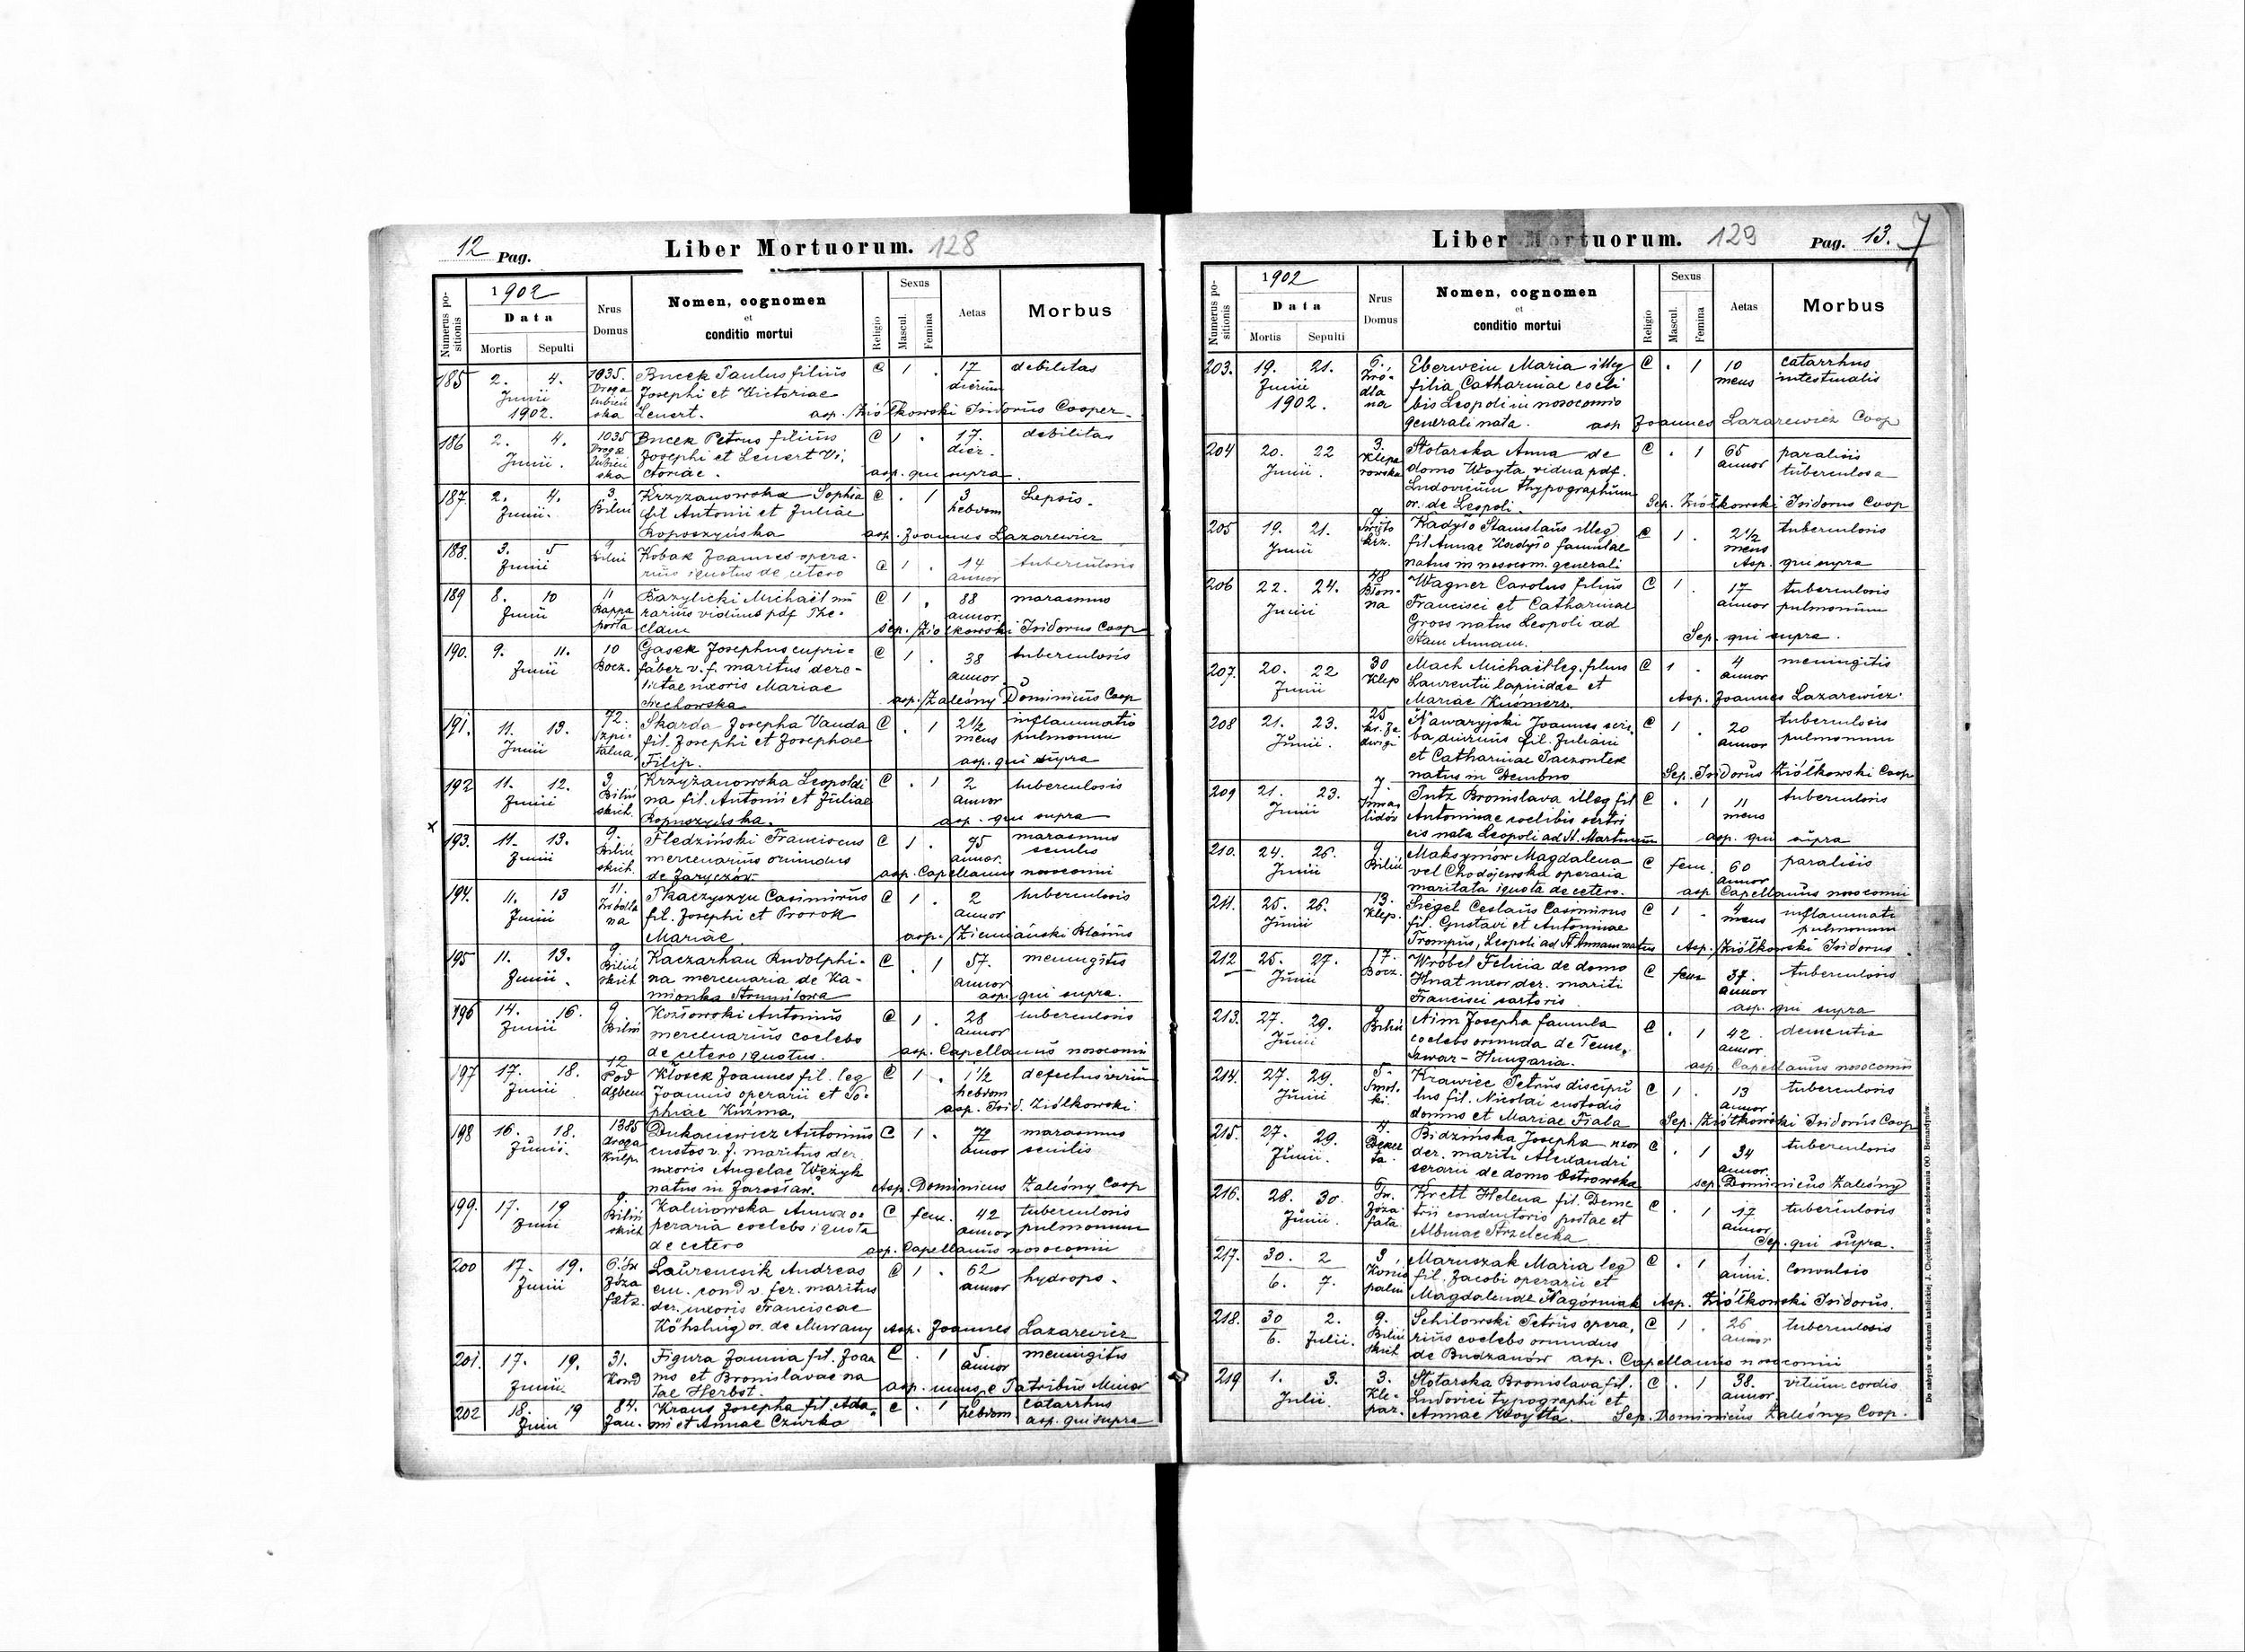 12 Pag. Liber Mortuorum. 128
Numerus positionis
1902
Data
Mortis Sepulti
Nrus Domus
Nomen, cognomen
et
conditio mortui
Religio
Sexus
Mascul. Femina
Aetas
Morbus
185 2. 4. 1035. Bucek Paulus filius C 1 . 17 debilitas
Junii Droga Josephi et Victoriae dierum
1902. ska Lenert. asp. Ziółkowski Isidorus Cooper.
186 2. 4. 1035 Bucek Petrus filius C 1 . 17. debilitas
Junii. Droga Josephi et Lenert Vi, dier.
ska ctoriae. asp. qui supra.
187. 2. 4. 3. Krzyzanowska Sophia C . 1 3 Sepsis.
Junii. Biliń fil Antonii et Juliae hebdom
Ropuszyńska asp. Joannes Lazarewicz
188. 3. 5 9 Kobak Joannes opera- C 1 . 14 tuberculosis
Junii Biliń rius ignotus de cetero annor
189 8. 10 11 Bazylicki Michaël mu C 1 . 88 marasmus
Junii Rappa rarius viduus pdf The- annor.
porta clam sep. Ziółkowski Isidorus Coop
190. 9. 11. 10 Gasek Josephus cupri= C 1 . 38 tuberculosis
Junii Bocz. faber v. f. maritus dere- annor.
lictae uxoris Mariae asp. Zaleśny Dominicus Coop
191. 11. 13. 72. Skarda Josepha Vanda C . 1 2 1/2 inflammatio
Junii Szpi- fil. Josephi et Josephae mens pulmonum
talna Filip. asp. qui supra
192 11. 12. 9. Krzyżanowska Leopoldi C . 1 2 tuberculosis
Junii Biliń na fil. Antonii et Juliae annor
skich. Ropuszyńska. asp. qui supra
x
193. 11. 13. 9. Fledziński Franciscus C 1 . 75 marasmus
Junii Biliń mercenarius oriundus annor. senilis
skich. de Jaryczów asp. Capellanus nosocomii
194. 11. 13 11. Tkaczyszyn Casimirus C 1 . 2 tuberculosis
Junii Źródla fil. Josephi et Prorok annor
na Mariae. asp. Ziemiański Blasius
195 11. 13. 9. Kaczarhau Rudolphi- C . 1 57. meningitis
Junii. Biliń na mercenaria de Ka- annor
skich mionka Strumilowa asp. qui supra.
196 14. 16. 9 Kozłowski Antonius C 1 . 28 tuberculosis
Junii Biliń mercenarius coelebs annor
de cetero ignotus. asp. Capellanus nosocomii
197 17. 18. 12 Kłosek Joannes fil. leg C 1 . 1 1/2 defectus virium
Junii Pod Joannis operarii et So- hebdom
dębem phiae Kuźma, asp. Isid. Ziółkowski
198 16. 18. 1385 Dukaciewicz Antonius C 1 . 72 marasmus
Junii. droga custos v. f. maritus der. annor senilis
Kulp. uxoris Angelae Wężyk
natus in Jarosław. Asp. Dominicus Zaleśny Coop
199. 17. 19 9. Kalinowska Anna o- C fem. 42 tuberculosis
Junii Biliń peraria coelebs ignota annor pulmonum
skich de cetero asp. Capellanus nosocomii
200 17. 19. 6. Św Laurencsik Andreas C 1 . 62 hydrops.
Junii Józa em. cond v. fer. maritus annor
fata. der. uxoris Franciscae
or. de Murany Asp. Joannes Lazarewicz
201. 17. 19. 31. Figura Joannia fil. Joan C . 1 5. meningitis
Junii. Kond nis et Bronislavae na annor
tae Herbst. asp. unus e Patribus Minor
202 18. 19 84. Kraus Josepha fil. Ada- C . 1 6 catarrhus
Junii Jan. mi et Annae Czwirko hebdom asp. qui supra
Liber Mortuorum. 129 Pag. 13. 7
Numerus positionis
1902
Data
Mortis Sepulti
Nrus Domus
Nomen, cognomen
et
conditio mortui
Religio
Sexus
Mascul. Femina
Aetas
Morbus
203. 19. 21. 6. Eberwein Maria illeg C . 1 10 catarrhus
Junii Źró- filia Catharinae coeli mens intestinalis
1902. dla bis Leopoli in nosocomio
na generali nata. asp Joannes Lazarewicz Coop
204 20. 22 3. Stotarska Anna de C . 1 65 paralisis
Junii. Klepa domo Woyta vidua pdf. annor tuberculosa
rowska Ludovicum thypographum
or. de Leopoli. Sep. Ziółkowski Isidorus Coop
205 19. 21. 7 Kadyło Stanislaus illeg C 1 . 2 1/2 tuberculosis
Junii Święto fil Annae Kadyło famulae mens
krz. natus in nosocom. generali Asp. qui supra
206 22. 24. 48 Wagner Carolus filius C 1 . 17 tuberculosis
Junii Błon- Francisci et Catharinae annor pulmonum
na Gross natus Leopoli ad
Stam Annam. Sep. qui supra.
207. 20. 22 30 Mach Michaël leg. filius C 1 . 4 meningitis
Junii Klep Laurentii lapicidae et annor
Mariae Kuśmierz. Asp. Joannes Lazarewicz.
208 21. 23. 25 Nawaryjski Joannes scri, C 1 . 20 tuberculosis
Junii. ba diurnus fil. Juliani annor pulmonum
et Catharinae Paczontek
natus in Dembno Sep. Isidorus Ziółkowski Coop
209 21. 23. 7. Putz Bronislava illeg fil C . 1 11 tuberculosis
Junii Inwa Antoninae coelibis sartri mens
lidów cis nata Leopoli ad St. Martinum asp. qui supra
210. 24. 26. 9 Maksymów Magdalena C fem. 60 paralisis
Junii Biliń vel Chodojewska operaria annor
maritata ignota de cetero. asp. Capellanus nosocomii
211. 25. 26. 13. Siegel Ceslaus Casimirus C 1 . 4 inflammati
Junii Klep. fil. Gustavi et Antoninae mens pulmonum
Trompus, Leopoli ad St Annam natus Asp. Ziółkowski Isidorus
212 25. 27. 17. Wróbel Felicia de domo C fem 37. tuberculosis
Junii Bocz. Hnat uxor der. mariti annor
Francisci sartoris asp. qui supra
213. 27. 29. 9 Nim Josepha famula C . 1 42. dementia
Junii Biliń coelebs oriunda de Teme, annor.
szwar - Hungaria. asp. Capellanus nosocomii
214. 27. 29. 5. Krawiec Petrus discipu C 1 . 13 tuberculosis
Junii Smol- lus fil. Nicolai custodis annor
ki. domus et Mariae Fiala Sep. Ziółkowski Isidorus Coop
215. 27. 29. 4. Bidzińska Josepha uxor C . 1 34 tuberculosis
Junii. der. mariti Alexandri annor.
ta. serarii de domo Ostrowska sep. Dominicus Zaleśny
216. 28. 30. 6 Krett Helena fil. Deme C . 1 17 tuberculosis
Junii. Św. Józa trii conductoris postae et annor
fata Albinae Strzelecka Sep. qui supra.
217. 30. 2 9, Maruszak Maria leg C . 1 1. Convulsio
6. 7. Konio fil. Jacobi operarii et anni.
palni Magdalenae Nagórniak Asp. Ziółkowski Isidorus.
218. 30 2. 9. Schilowski Petrus opera, C 1 . 26 tuberculosis
6. Julii. Biliń rius coelebs oriundus annor
skich de Budzanów asp. Capellanus nosocomii
219 1. 3. 3. Stotarska Bronislava fil. C . 1 38. vitium cordis
Julii Kle- Ludovici typographi et annor
par. Annae Woytta. Sep. Dominicus Zaleśny Coop.
Do nabycia w drukarni katolickiej J. Chęcińskiego w zabudowaniu OO. Bernardynów.